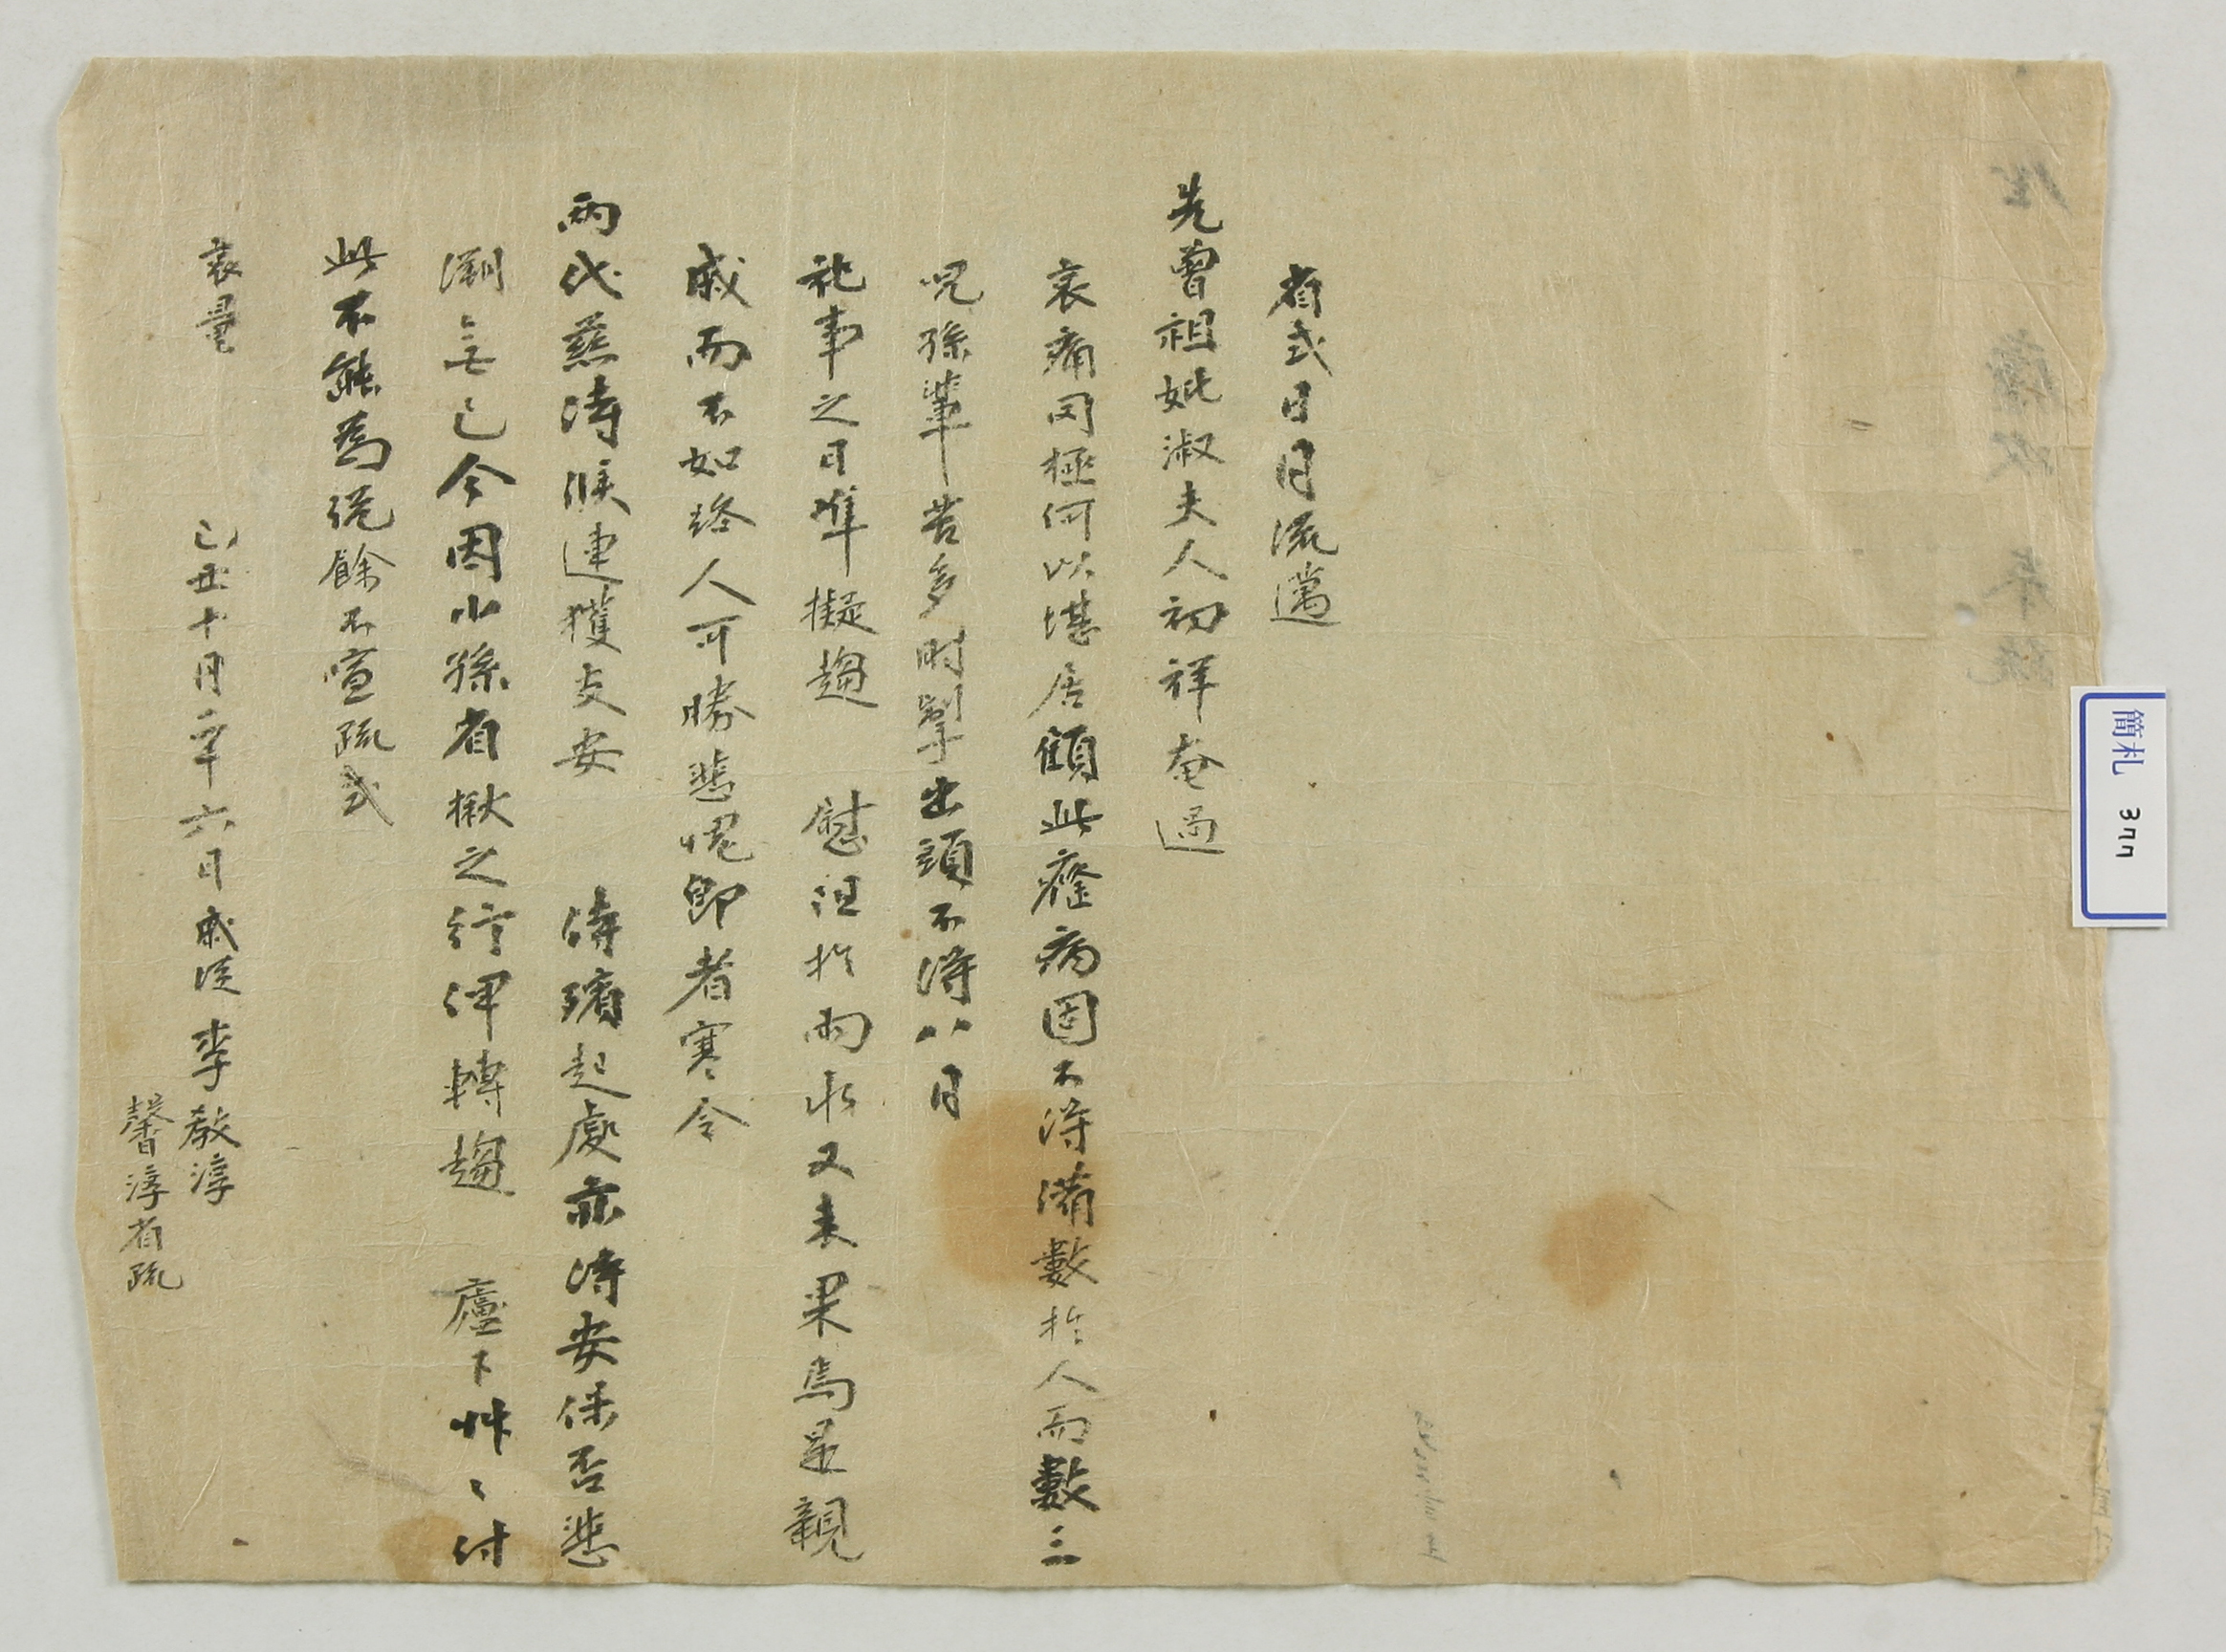 省式日月流邁
先曾祖妣淑夫人初祥奄過
哀痛罔極何以堪居顧此癃病固不得備數於人而數三
兒孫輩苦多時掣出頭不得八日
祀事之日準擬趨 慰沮於雨水又未果焉是親
戚而不如路人可勝悲愧卽者寒令
兩代慈侍候連獲支安 侍殯起處亦得安保否悲
溯無已今因小孫省楸之行俾轉趨 廬下艸〻付
此不能爲說餘不宣疏式
哀量
己丑十月二十六日戚從 李敎淳
馨淳省疏
簡札 377